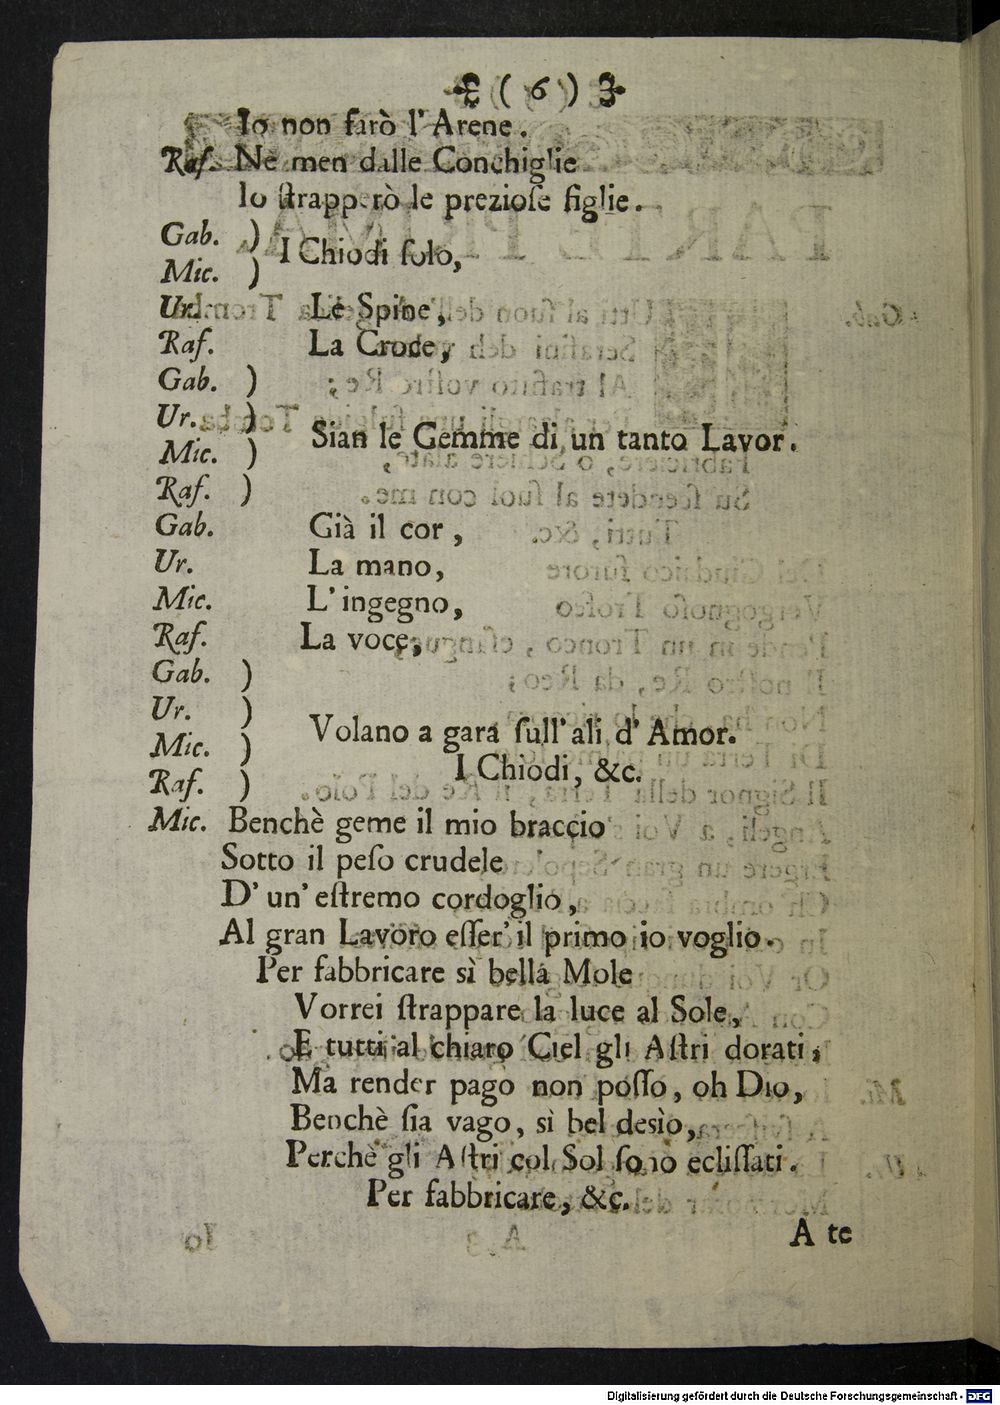 ( 6 )
Io non farò l' Arene.
Raf. Nè men dalle Conchiglie
Io ſtrapperò le prezioſe figlie.
Gab. )
Mic. ) I Chiodi ſolo,
Ur. Le Spine,
Raf. La Croce,
Gab. )
Ur. )
Mic. ) Sian le Gemme di un tanto Lavor.
Raf. )
Gab. Già il cor,
Ur. La mano,
Mic. L' ingegno,
Raf. La voce,
Gab. )
Ur. )
Mic. ) Volano a gara ſull' ali d' Amor.
Raf. ) I Chiodi, &c.
Mic. Benchè geme il mio braccio
Sotto il peſo crudele
D' un' eſtremo cordoglio,
Al gran Lavoro eſſer' il primo io voglio.
Per fabbricare sì bella Mole
Vorrei ſtrappare la luce al Sole,
E tutti al chiaro Ciel gli Aſtri dorati,
Ma render pago non poſſo, oh Dio,
Benchè ſia vago, sì bel desìo,
Perchè gli Aſtri col Sol ſono ecliſſati.
Per fabbricare, &c.
A te
Digitalisierung gefördert durch die Deutsche Forschungsgemeinschaft - DFG